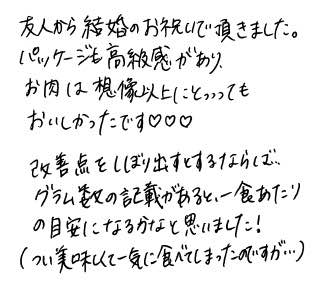 友人から結婚のお祝いで頂きました。
パッケージも高級感があり、
お肉は想像以上にとっっっても
おいしかったです♡♡♡
改善点をしぼり出すとするならば、
グラム数の記載があると、一食あたり
の目安になるかなと思いました！
(つい美味しくて一気に食べてしまったのですが…)